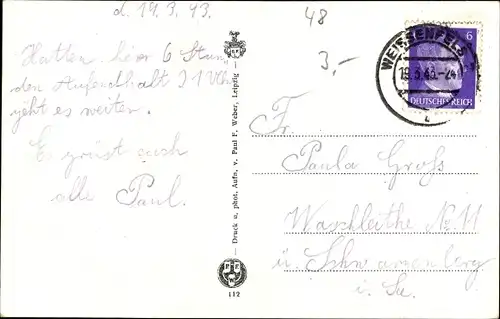 d. 19.3.43.
48
3.-
Hatten hier 6 Stun
den Aufenthalt 21 Uhr
geht es weiter.
Es grüst euch
alle Paul.
Druck u. phot. Aufn. v. Paul F. Weber, Leipzig
112
WEISSENFELS
19.3.43.-24
6
DEUTSCHES REICH
Fr.
Paula Groß
Waschleithe Nr. 11
ü. Schwarzenberg
i. Sa.